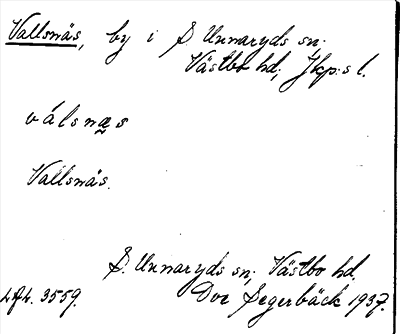 Vallsnäs, by i S. Unnaryds sn;
Västbo hd; Jkp:s l.
válsnæs
Vallsnäs.
S. Unnaryds sn; Västbo hd.
Lfl. 3559. Dor Segerbäck 1937.